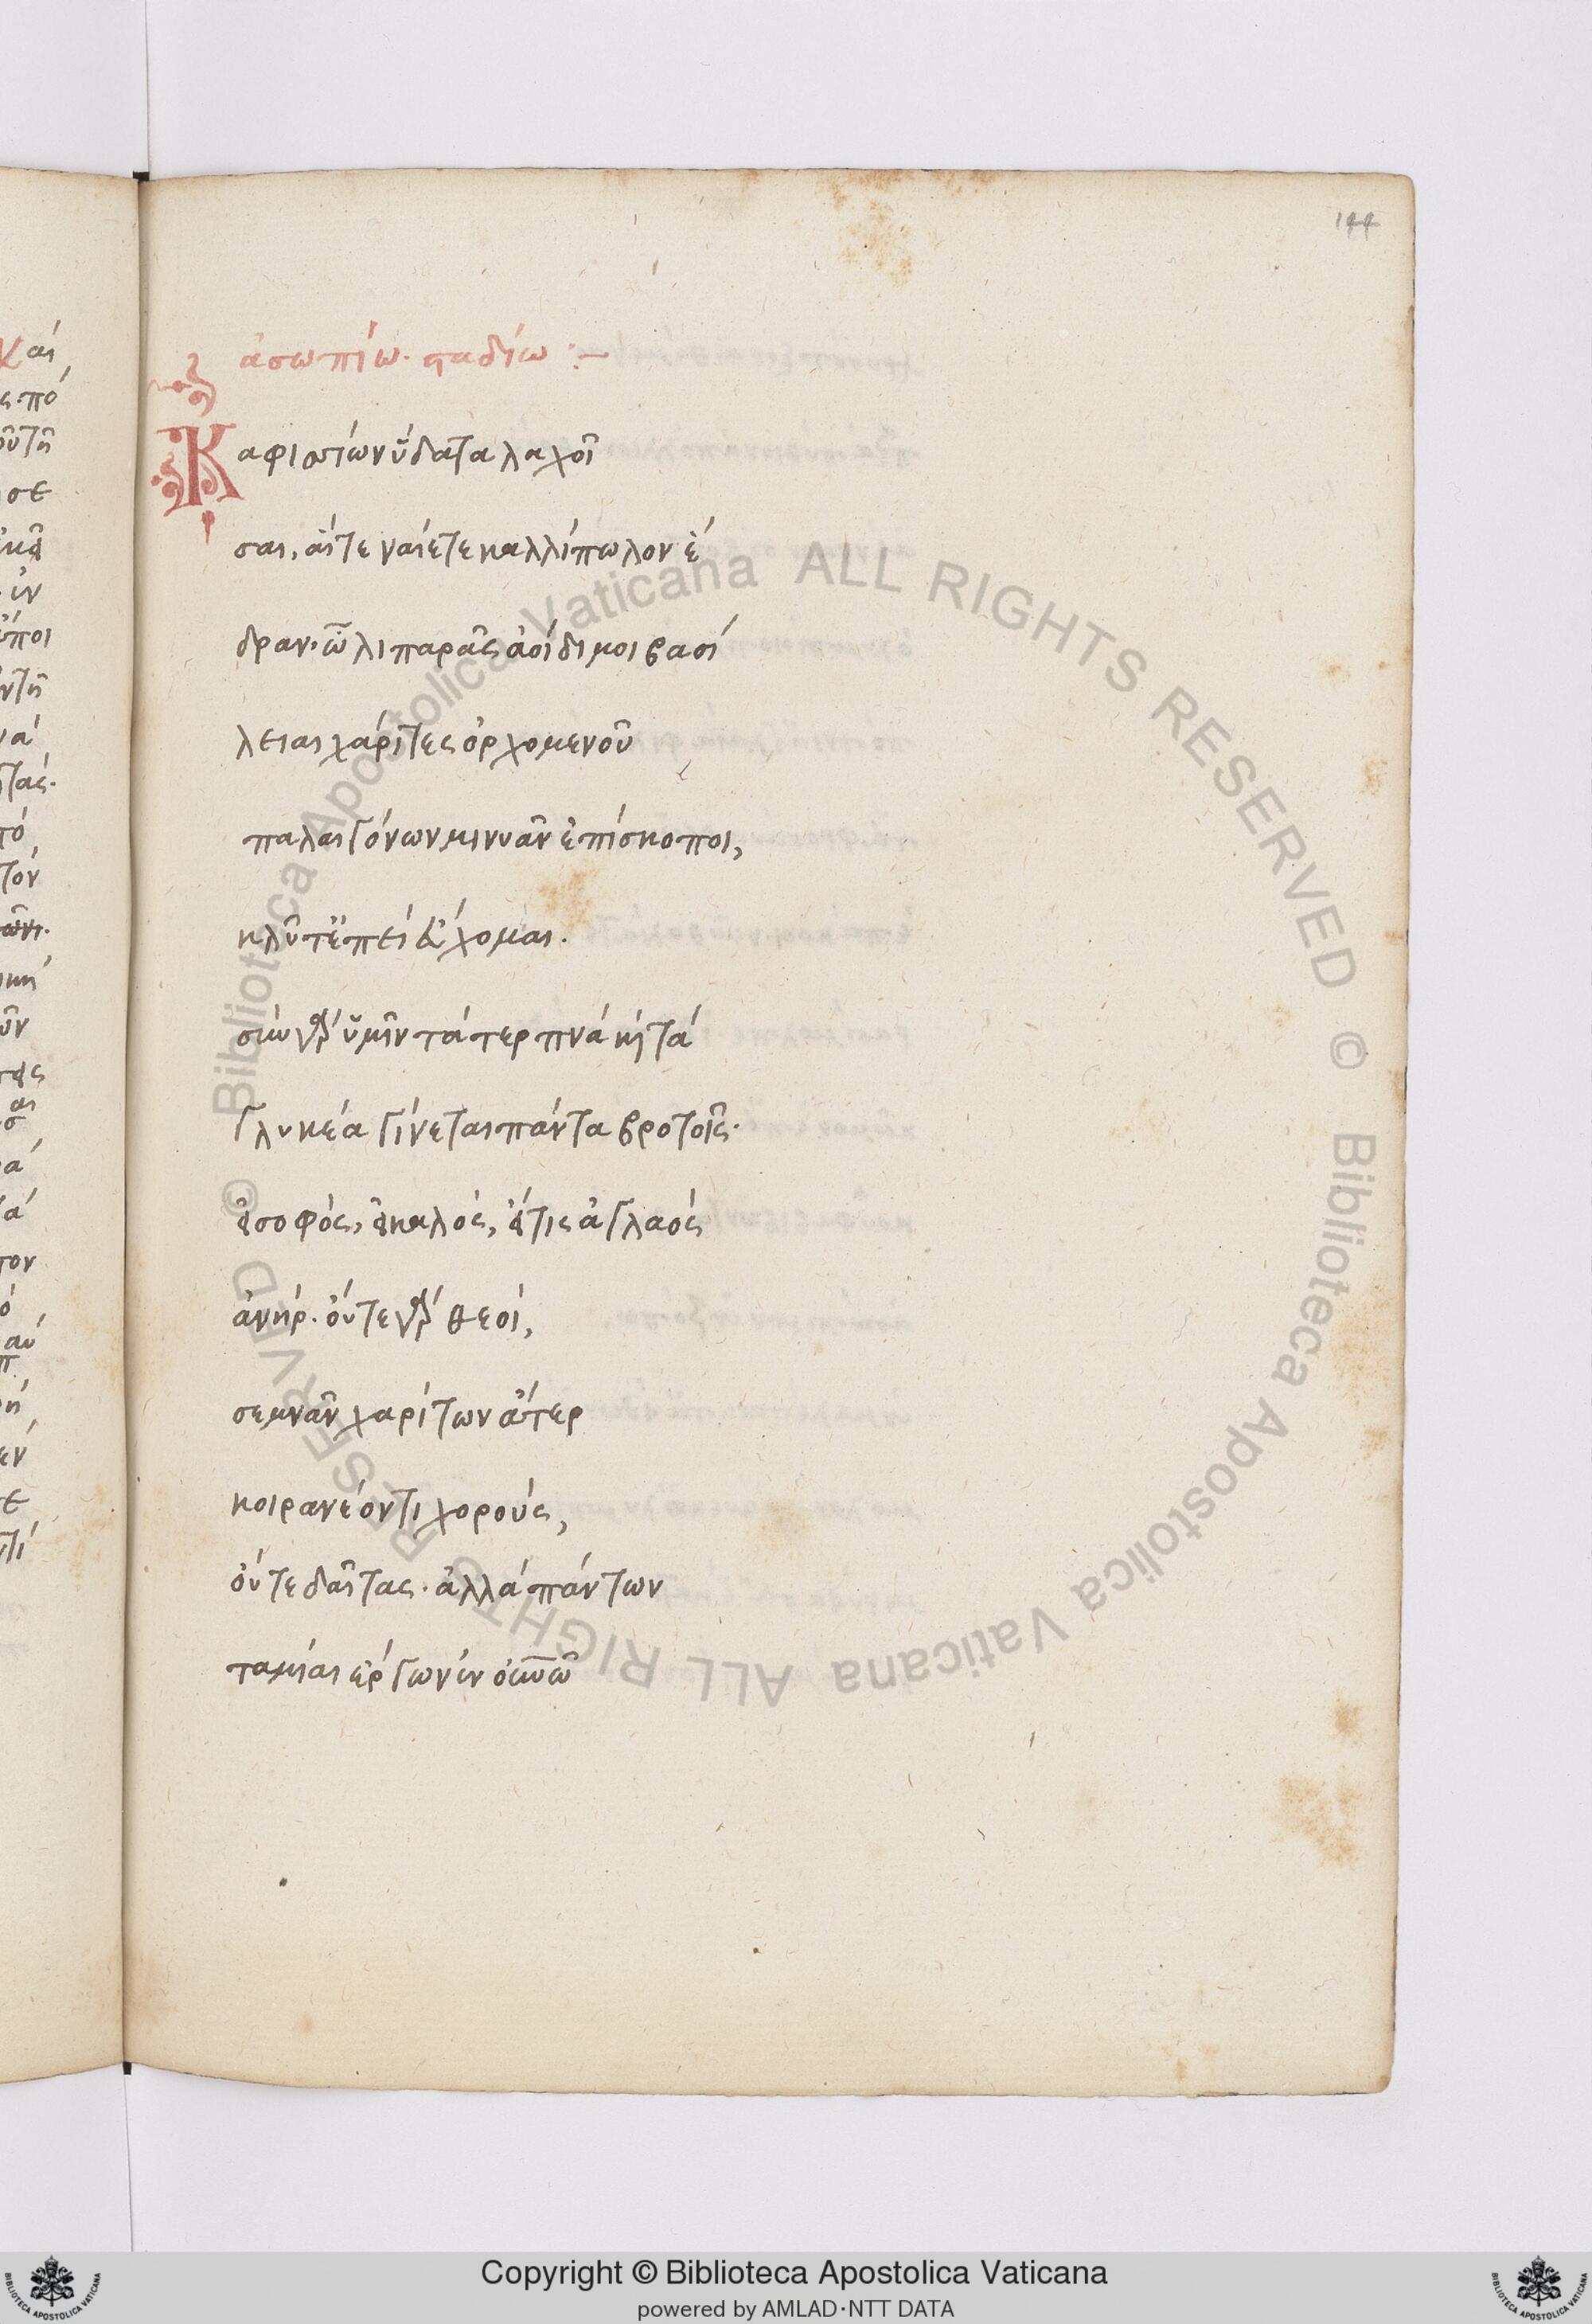 144
ἀσωπίω· σταδίω :–
Καφισίων ὕδατα λαχοῖ
σαι, αἵτε ναίετε καλλίπωλον ἕ
δραν· ὦ λιπαρᾶς ἀοίδιμοι βασί
λειαι χάριτες ὀρχομενοῦ
παλαιγόνων μινυᾶν ἐπίσκοποι,
κλῦτ' ἐπεὶ εὔχομαι.
σὺν γὰρ ὑμῖν τὰ τερπνὰ κὴ τὰ
γλυκέα γίνεται πάντα βροτοῖς·
εἰ σοφὸς, εἰ καλὸς, εἴ τις ἀγλαὸς
ἀνήρ. οὔτε γὰρ θεοὶ,
σεμνᾶν χαρίτων ἄτερ
κοιρανέοντι χοροὺς,
οὔτε δαῖτας· ἀλλὰ πάντων
ταμίαι ἔργων ἐν οὐνῶ
Copyright © Biblioteca Apostolica Vaticana
powered by AMLAD·NTT DATA
© Biblioteca Apostolica Vaticana ALL RIGHTS RESERVED
© Biblioteca Apostolica Vaticana ALL RIGHTS RESERVED
BIBLIOTECA APOSTOLICA VATICANA
BIBLIOTECA APOSTOLICA VATICANA